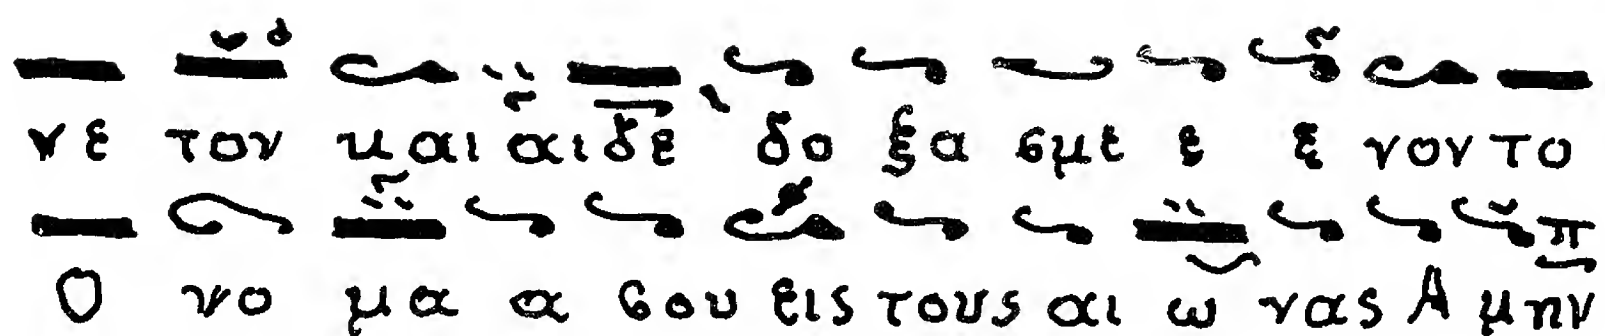 νε τον και αι δε δο ξα σμε ε ε νον το
Ο νο μα α σου εις τους αι ω νας Α μην